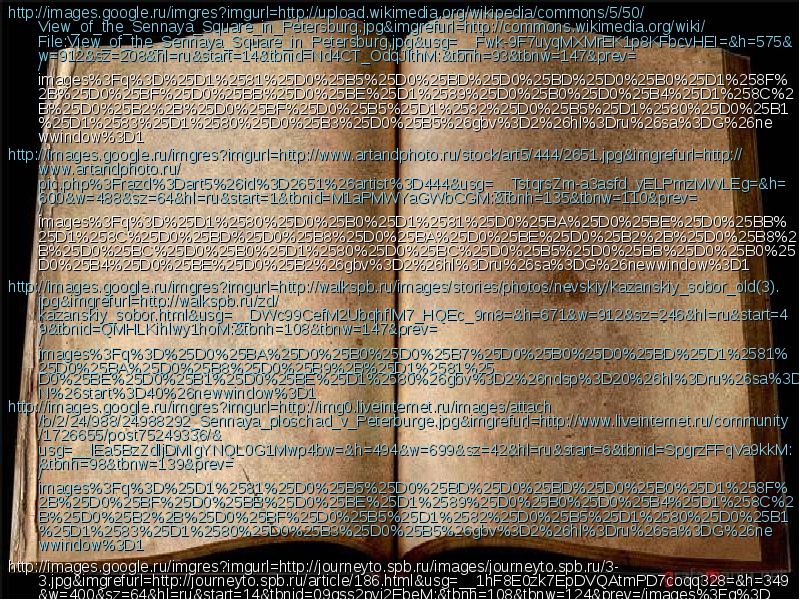 http://images.google.ru/imgres?imgurl=http://upload.wikimedia.org/wikipedia/commons/5/50/
View_of_the_Sennaya_Square_in_Petersburg.jpg&imgrefurl=http://commons.wikimedia.org/wiki/
File:View_of_the_Sennaya_Square_in_Petersburg.jpg&usg=__Fwk-9F7uyqMxMrEIK1p8KFbcvHEI=&h=575&
w=912&sz=208&hl=ru&start=14&tbnid=Nd4CT_OdqJithM:&tbnh=93&tbnw=147&prev=
/
images%3Fq%3D%25D1%2581%25D0%25B5%25D0%25BD%25D0%25BD%25D0%25B0%25D1%258F%
2B%25D0%25BF%25D0%25BB%25D0%25BE%25D1%2589%25D0%25B0%25D0%25B4%25D1%258C%2
B%25D0%25B2%2B%25D0%25BF%25D0%25B5%25D1%2582%25D0%25B5%25D1%2580%25D0%25B1
%25D1%2583%25D1%2580%25D0%25B3%25D0%25B5%26gbv%3D2%26hl%3Dru%26sa%3DG%26ne
wwindow%3D1
http://images.google.ru/imgres?imgurl=http://www.artandphoto.ru/stock/art5/444/2651.jpg&imgrefurl=http://
www.artandphoto.ru/
pic.php%3Frazd%3Dart5%26id%3D2651%26artist%3D444&usg=__TstqrsZrn-a3asfd_yELPmzMWLEg=&h=
600&w=488&sz=64&hl=ru&start=1&tbnid=M1aPMWYaGWbCGM:&tbnh=135&tbnw=110&prev=
/
images%3Fq%3D%25D1%2580%25D0%25B0%25D1%2581%25D0%25BA%25D0%25BE%25D0%25BB%
25D1%258C%25D0%25BD%25D0%25B8%25D0%25BA%25D0%25BE%25D0%25B2%2B%25D0%25B8%2
B%25D0%25BC%25D0%25B0%25D1%2580%25D0%25BC%25D0%25B5%25D0%25BB%25D0%25B0%25
D0%25B4%25D0%25BE%25D0%25B2%26gbv%3D2%26hl%3Dru%26sa%3DG%26newwindow%3D1
http://images.google.ru/imgres?imgurl=http://walkspb.ru/images/stories/photos/nevskiy/kazanskiy_sobor_old(3).
jpg&imgrefurl=http://walkspb.ru/zd/
kazanskiy_sobor.html&usg=__DWc99CefM2UbqhfIM7_HQEc_9m8=&h=671&w=912&sz=246&hl=ru&start=4
9&tbnid=QMHLKihlwy1hoM:&tbnh=108&tbnw=147&prev=
/
images%3Fq%3D%25D0%25BA%25D0%25B0%25D0%25B7%25D0%25B0%25D0%25BD%25D1%2581%
25D0%25BA%25D0%25B8%25D0%25B9%2B%25D1%2581%25
D0%25BE%25D0%25B1%25D0%25BE%25D1%2580%26gbv%3D2%26ndsp%3D20%26hl%3Dru%26sa%3D
N%26start%3D40%26newwindow%3D1
http://images.google.ru/imgres?imgurl=http://img0.liveinternet.ru/images/attach
/b/2/24/988/24988292_Sennaya_ploschad_v_Peterburge.jpg&imgrefurl=http://www.liveinternet.ru/community
/1726655/post75249336/&
usg=__lEa5BzZdljDMIgYNQL0G1Mwp4bw=&h=494&w=699&sz=42&hl=ru&start=6&tbnid=SpgrzFFqVa9kkM:
&tbnh=98&tbnw=139&prev=
/
images%3Fq%3D%25D1%2581%25D0%25B5%25D0%25BD%25D0%25BD%25D0%25B0%25D1%258F%
2B%25D0%25BF%25D0%25BB%25D0%25BE%25D1%2589%25D0%25B0%25D0%25B4%25D1%258C%2
B%25D0%25B2%2B%25D0%25BF%25D0%25B5%25D1%2582%25D0%25B5%25D1%2580%25D0%25B1
%25D1%2583%25D1%2580%25D0%25B3%25D0%25B5%26gbv%3D2%26hl%3Dru%26sa%3DG%26ne
wwindow%3D1
http://images.google.ru/imgres?imgurl=http://journeyto.spb.ru/images/journeyto.spb.ru/3-
3.jpg&imgrefurl=http://journeyto.spb.ru/article/186.html&usg=__1hF8E0zk7EpDVQAtmPD7coqq328=&h=349
&w=400&sz=64&hl=ru&start=14&tbnid=09gss2pvj2EbeM:&tbnh=108&tbnw=124&prev=/images%3Fq%3D